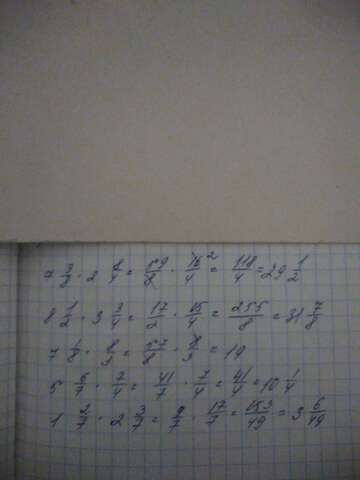 7 3/8 · 2 8/4 = 59/8 · 16/4 ² = 118/4 = 29 1/2
8 1/2 · 3 3/4 = 17/2 · 15/4 = 255/8 = 31 7/8
7 1/8 · 8/3 = 57/8 · 8/3 = 19
5 6/7 · 7/4 = 41/7 · 7/4 = 41/4 = 10 1/4
1 2/7 · 2 3/7 = 9/7 · 17/7 = 153/49 = 3 6/49